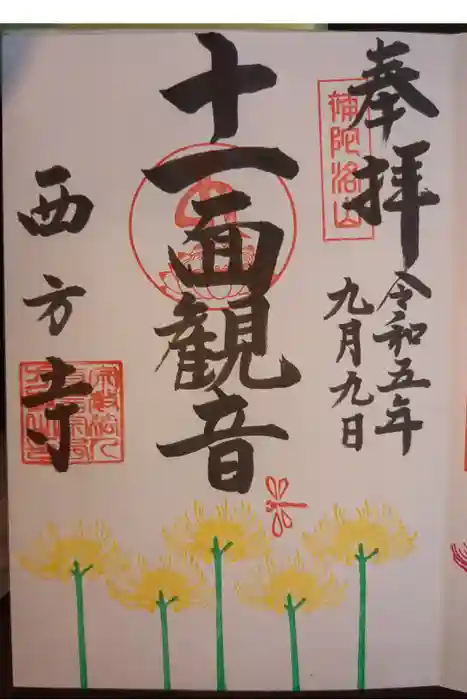 奉拝
令和五年
九月九日
補陀洛山
十一面観音
西方寺